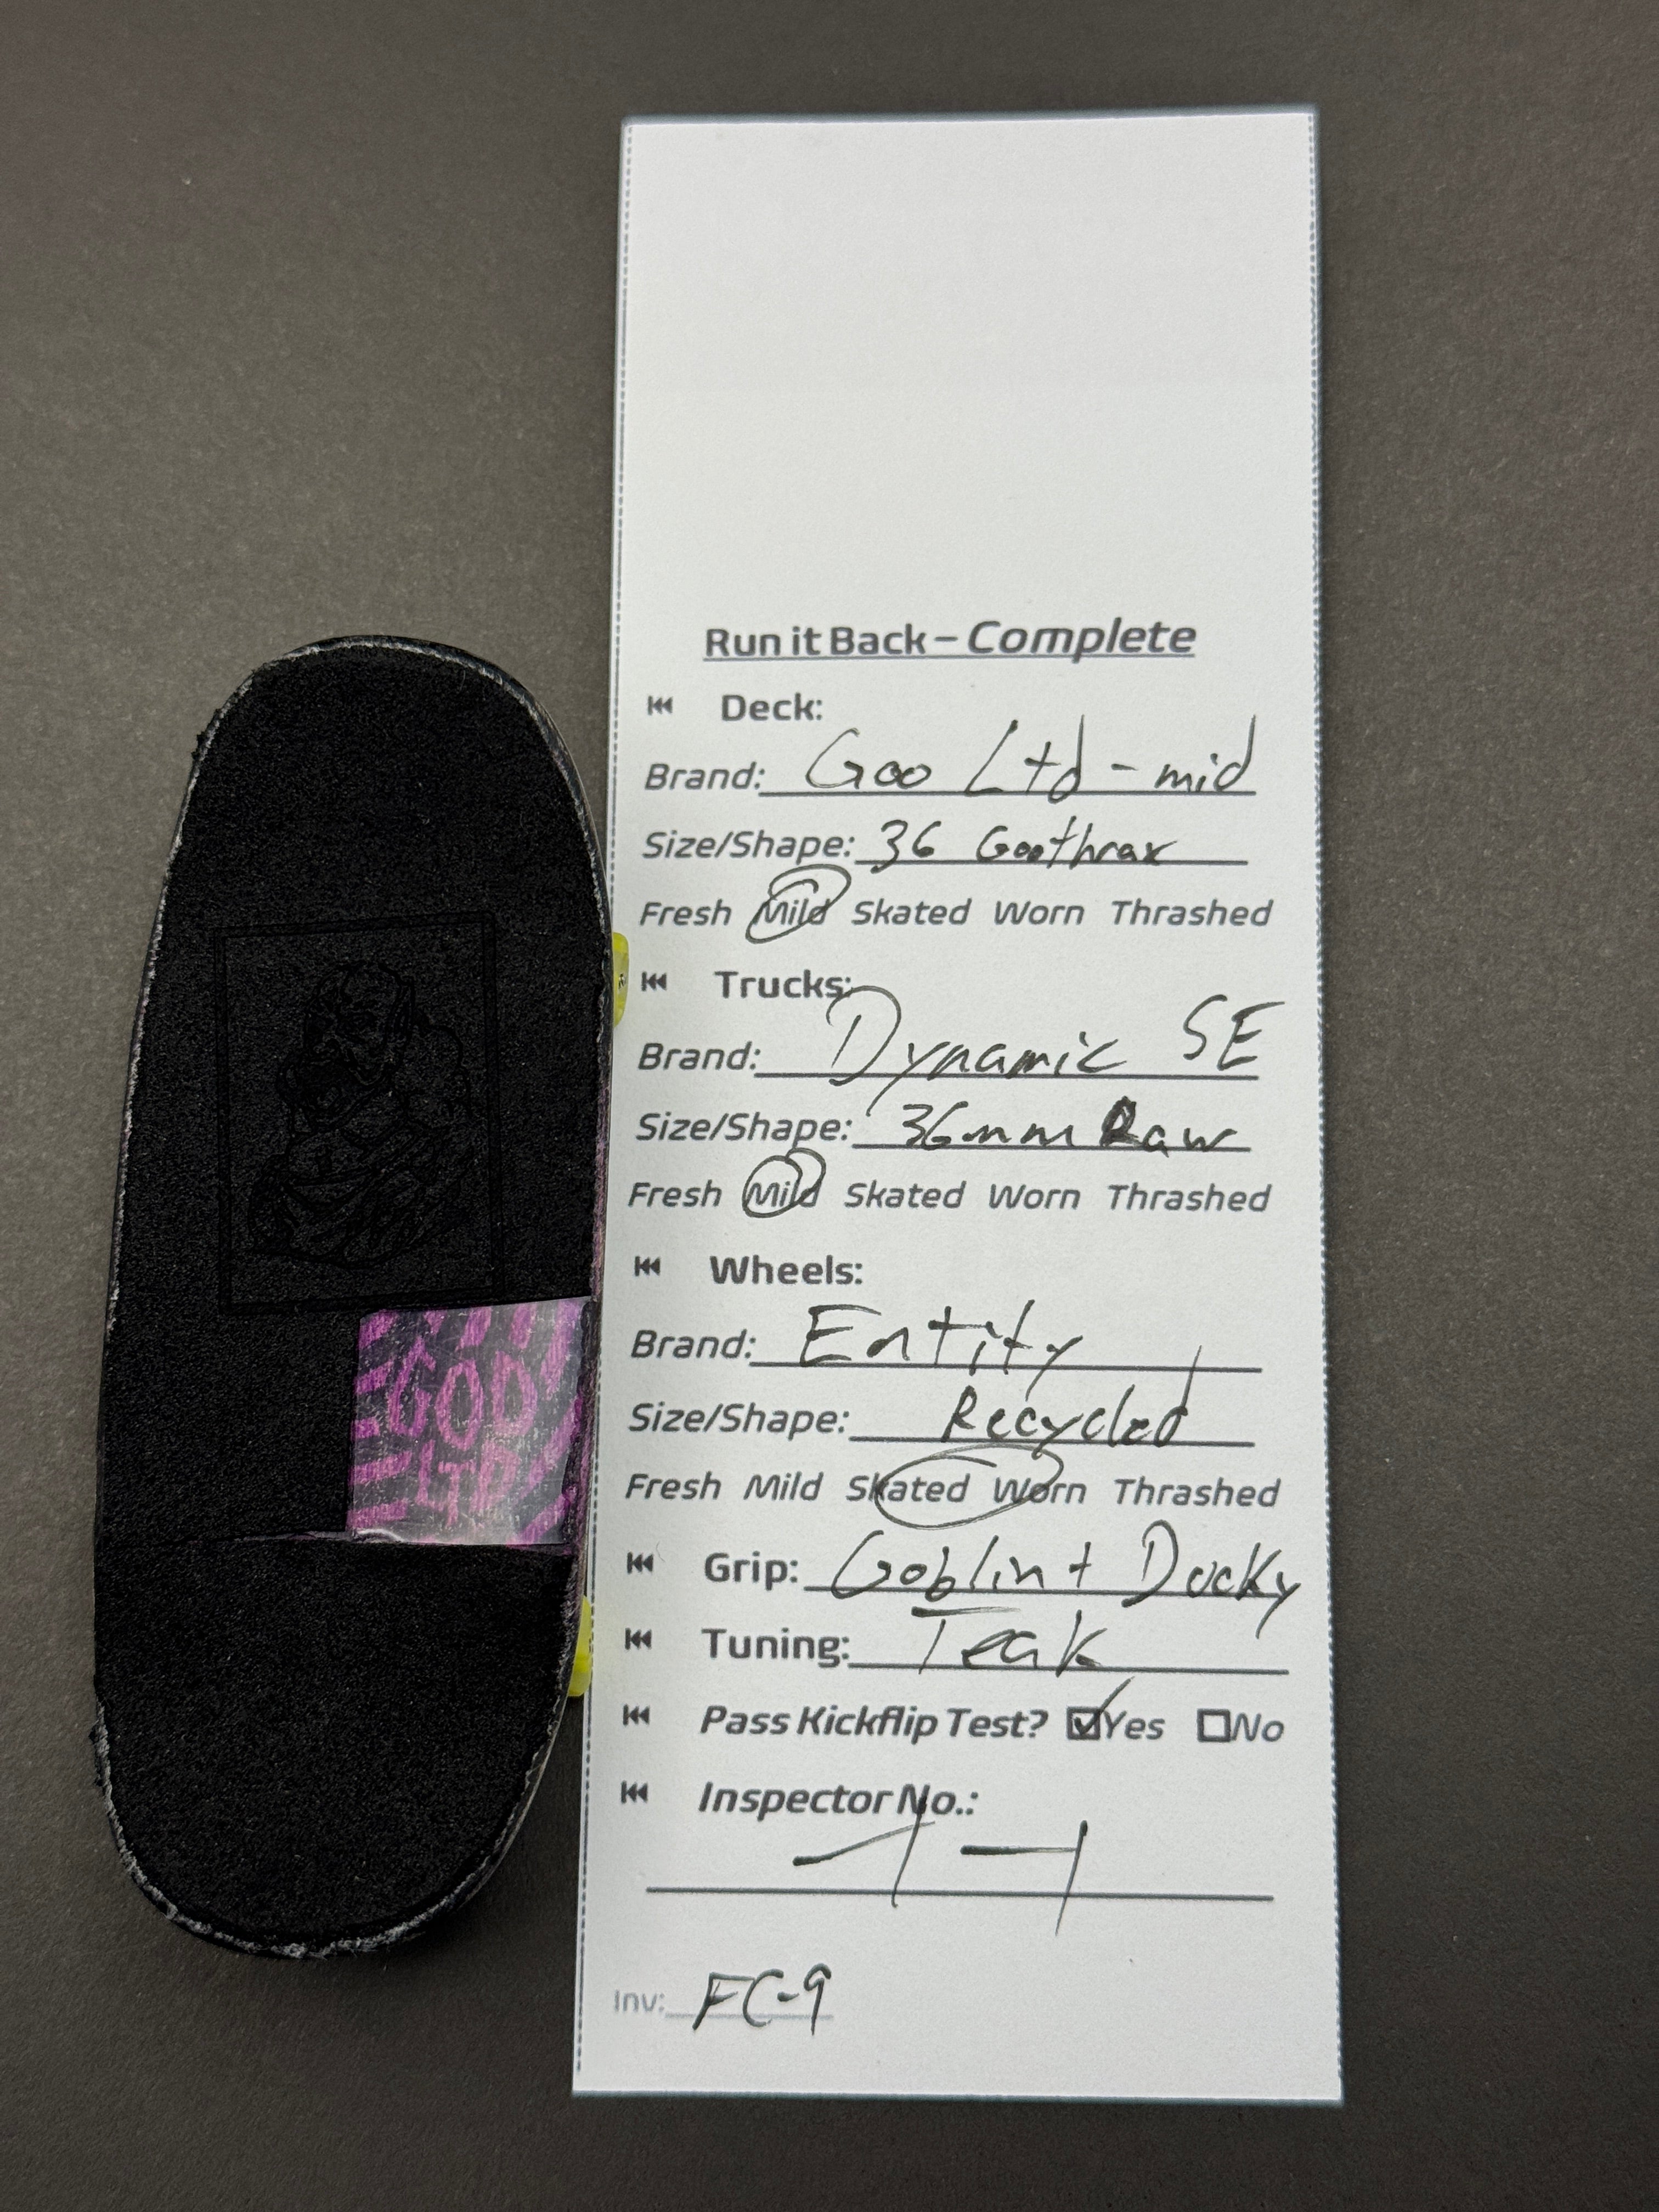 Run it Back – Complete
Deck:
Brand: Goo Ltd - mid
Size/Shape: 36 Goothrax
Fresh Mild Skated Worn Thrashed
Trucks:
Brand: Dynamic SE
Size/Shape: 36mm Raw
Fresh Mild Skated Worn Thrashed
Wheels:
Brand: Entity
Size/Shape: Recycled
Fresh Mild Skated Worn Thrashed
Grip: Goblin + Ducky
Tuning: Teak
Pass Kickflip Test? Yes No
Inspector No.:
Inv: FC-9
GOO
LTD